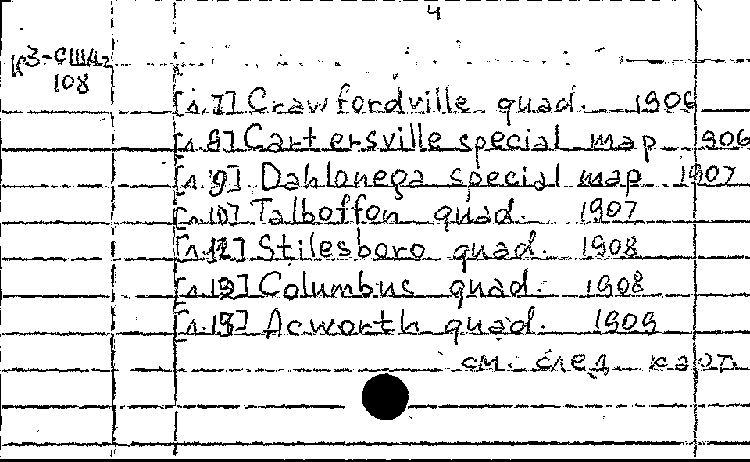 4
К3-США2
108
[л.7] Crawfordville quad. 1906
[л.8] Cartersville special map 1906
[л.9] Dahlonega special map 1907
[л.10] Talboffon quad. 1907
[л.12] Stilesboro quad. 1908
[л.13] Columbus quad. 1908
[л.15] Acworth quad. 1909
см. след. карт.